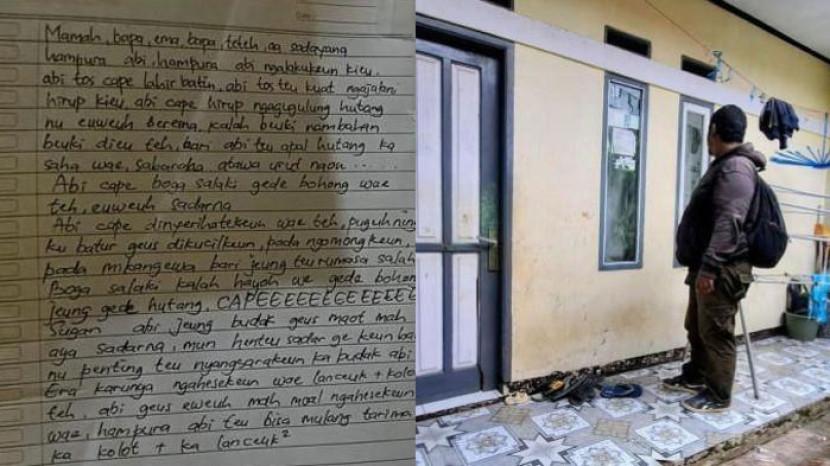 Mamah, bapa, ema, bapa, teteh, aa sadayana
hampura abi, hampura abi ngalakukeun kieu.
abi tos cape lahir batin, abi tos teu kuat ngajalani
hirup kieu, abi cape hirup ngagugulung hutang
nu euweuh berema, kalah beuki nambahan
beuki dieu teh, bari abi teu apal hutang ka
saha wae, sabaraha atawa urut naon ......
Abi cape boga salaki gede bohong wae
teh, euweuh sadarna
Abi cape dinyerihatekeun wae teh, puguh ning
ku batur geus dikucilkeun, pada ngomongkeun,
pada mikangewa bari jeung teu rumasa salah
Boga salaki kalah hayoh we gede bohong
jeung gede hutang, CAPEEEEEEEEEEEEEE
Sugan abi jeung budak geus maot mah
aya sadarna, mun henteu sadar ge keun bae
nu penting teu nyangsarakeun ka budak abi
Era karunya ngahesekeun wae lanceuk + kolot
teh, abi geus euweuh mah moal ngahesekeun
wae, hampura abi teu bisa mulang tarima
ka kolot + ka lanceuk²